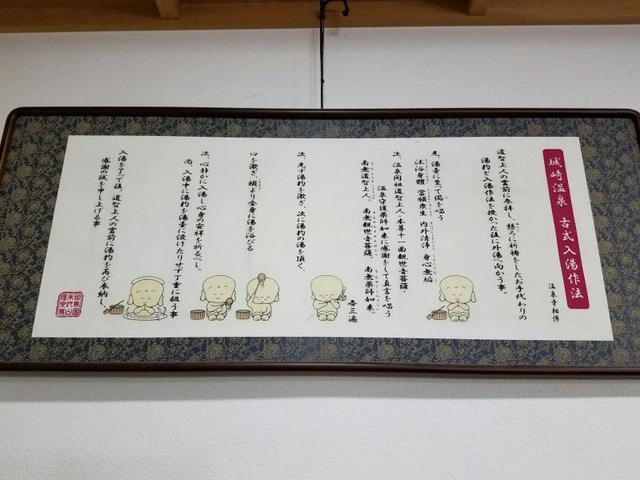 城崎温泉 古式入湯作法
温泉寺相傳
道智上人の霊前に参拝し、懇ろに祈祷をしたお手代わりの
湯杓と入湯作法を授かった後に外湯へ向かう事。
先、湯壷に至て偈を唱う
沐浴身體 當願衆生 内外清浄 身心無垢
次、温泉開祖道智上人・本尊十一面観世音菩薩・
温泉守護薬師如来に感謝をして真言を唱う
南無道智上人、 南無観世音菩薩、 南無薬師如来、
各三遍
次、先ず湯杓を漱ぎ、次に湯杓の湯を頂く。
口を漱ぎ、頭より全身に湯を浴びる
次、心静かに入湯し心身の安祥を祈るべし。
尚、入湯中に湯杓を湯壷に漬けたりせず丁重に扱う事
入湯を了って後、道智上人の霊前に湯杓を再び奉納し、
感謝の誠を申し上げる事